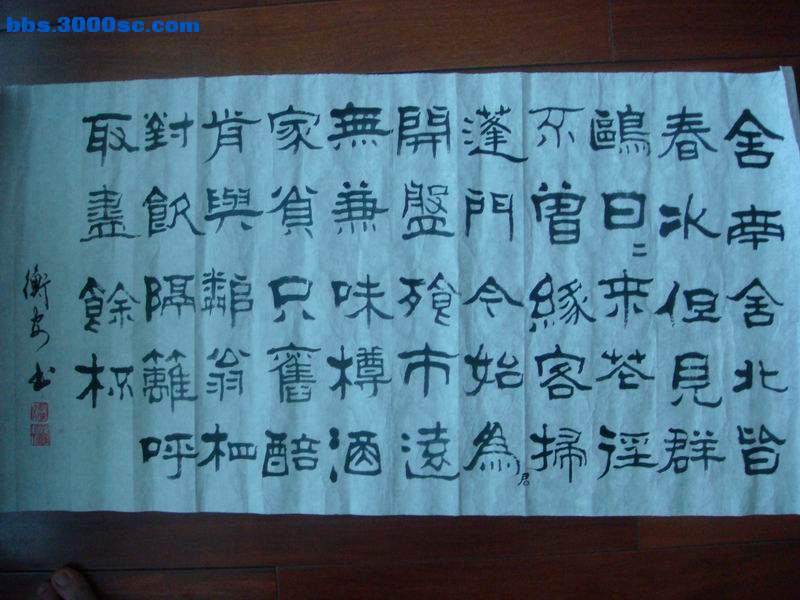 bbs.3000sc.com
舍南舍北皆
春水但見群
鷗日々來花徑
不曾緣客掃
蓬門今始為君
開盤飧市遠
無兼味樽酒
家貧只舊醅
肯與鄰翁相
對飲隔籬呼
取盡餘杯
衡安书